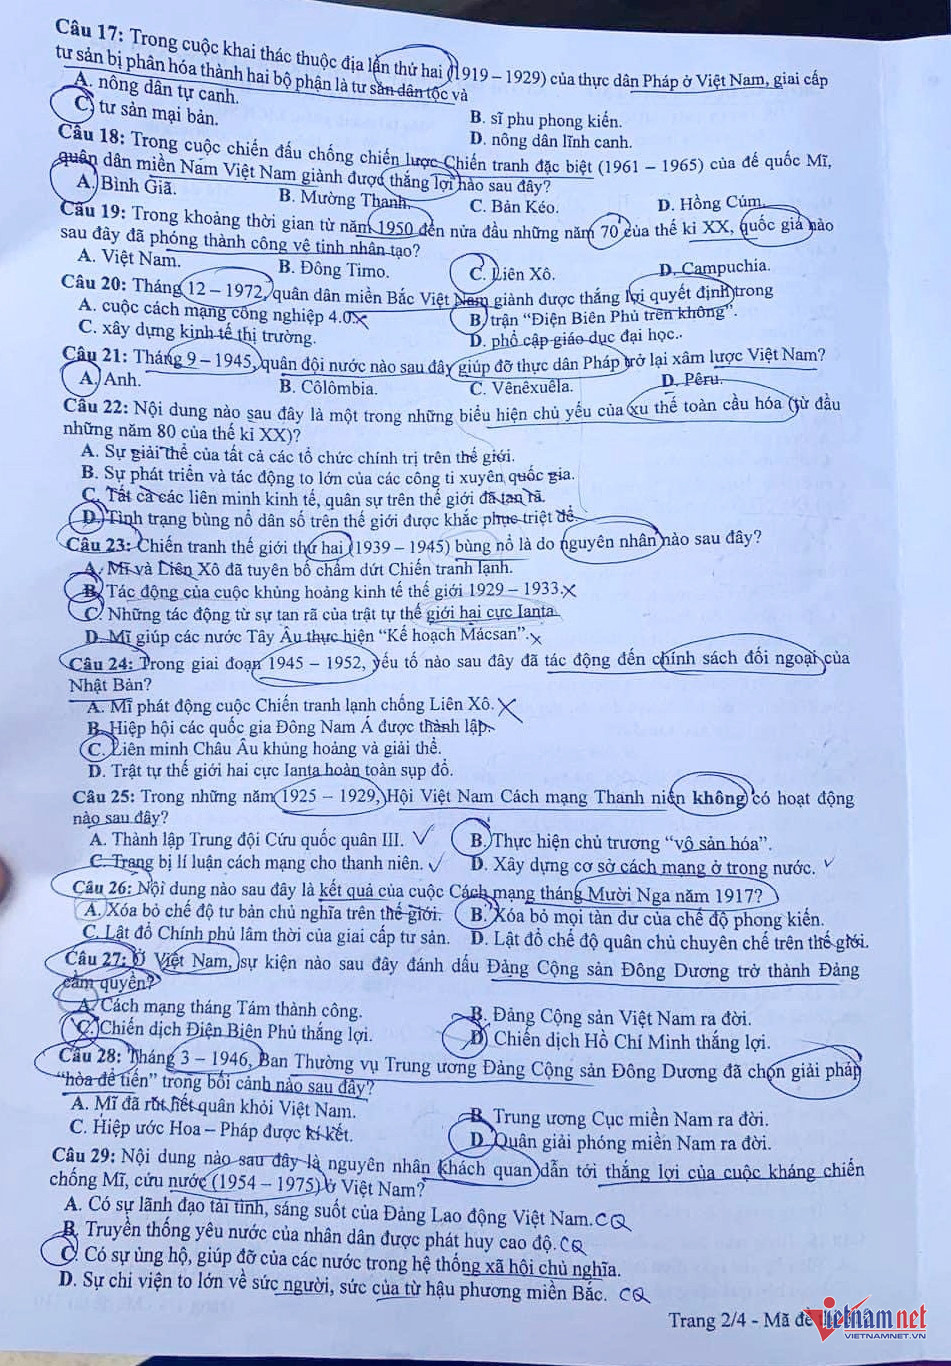 Câu 17: Trong cuộc khai thác thuộc địa lần thứ hai (1919 – 1929) của thực dân Pháp ở Việt Nam, giai cấp
tư sản bị phân hóa thành hai bộ phận là tư sản dân tộc và
A. nông dân tự canh.
B. sĩ phu phong kiến.
C. tư sản mại bản.
D. nông dân lĩnh canh.
Câu 18: Trong cuộc chiến đấu chống chiến lược Chiến tranh đặc biệt (1961 – 1965) của đế quốc Mĩ,
quân dân miền Nam Việt Nam giành được thắng lợi nào sau đây?
A. Bình Giã. B. Mường Thanh. C. Bản Kéo. D. Hồng Cúm.
Câu 19: Trong khoảng thời gian từ năm 1950 đến nửa đầu những năm 70 của thế kỉ XX, quốc gia nào
sau đây đã phóng thành công vệ tinh nhân tạo?
A. Việt Nam. B. Đông Timo. C. Liên Xô. D. Campuchia.
Câu 20: Tháng 12 – 1972, quân dân miền Bắc Việt Nam giành được thắng lợi quyết định trong
A. cuộc cách mạng công nghiệp 4.0. B. trận “Điện Biên Phủ trên không”.
C. xây dựng kinh tế thị trường. D. phổ cập giáo dục đại học..
Câu 21: Tháng 9 – 1945, quân đội nước nào sau đây giúp đỡ thực dân Pháp trở lại xâm lược Việt Nam?
A. Anh. B. Côlômbia. C. Vênêxuêla. D. Pêru.
Câu 22: Nội dung nào sau đây là một trong những biểu hiện chủ yếu của xu thế toàn cầu hóa (từ đầu
những năm 80 của thế kỉ XX)?
A. Sự giải thể của tất cả các tổ chức chính trị trên thế giới.
B. Sự phát triển và tác động to lớn của các công ti xuyên quốc gia.
C. Tất cả các liên minh kinh tế, quân sự trên thế giới đã tan rã.
D. Tình trạng bùng nổ dân số trên thế giới được khắc phục triệt để.
Câu 23: Chiến tranh thế giới thứ hai (1939 – 1945) bùng nổ là do nguyên nhân nào sau đây?
A. Mĩ và Liên Xô đã tuyên bố chấm dứt Chiến tranh lạnh.
B. Tác động của cuộc khủng hoảng kinh tế thế giới 1929 – 1933.
C. Những tác động từ sự tan rã của trật tự thế giới hai cực Ianta.
D. Mĩ giúp các nước Tây Âu thực hiện “Kế hoạch Mácsan”.
Câu 24: Trong giai đoạn 1945 – 1952, yếu tố nào sau đây đã tác động đến chính sách đối ngoại của
Nhật Bản?
A. Mĩ phát động cuộc Chiến tranh lạnh chống Liên Xô.
B. Hiệp hội các quốc gia Đông Nam Á được thành lập.
C. Liên minh Châu Âu khủng hoảng và giải thể.
D. Trật tự thế giới hai cực Ianta hoàn toàn sụp đổ.
Câu 25: Trong những năm 1925 – 1929, Hội Việt Nam Cách mạng Thanh niên không có hoạt động
nào sau đây?
A. Thành lập Trung đội Cứu quốc quân III. B. Thực hiện chủ trương “vô sản hóa”.
C. Trang bị lí luận cách mạng cho thanh niên. D. Xây dựng cơ sở cách mạng ở trong nước.
Câu 26: Nội dung nào sau đây là kết quả của cuộc Cách mạng tháng Mười Nga năm 1917?
A. Xóa bỏ chế độ tư bản chủ nghĩa trên thế giới. B. Xóa bỏ mọi tàn dư của chế độ phong kiến.
C. Lật đổ Chính phủ lâm thời của giai cấp tư sản. D. Lật đổ chế độ quân chủ chuyên chế trên thế giới.
Câu 27: Ở Việt Nam, sự kiện nào sau đây đánh dấu Đảng Cộng sản Đông Dương trở thành Đảng
cầm quyền?
A. Cách mạng tháng Tám thành công. B. Đảng Cộng sản Việt Nam ra đời.
C. Chiến dịch Điện Biên Phủ thắng lợi. D. Chiến dịch Hồ Chí Minh thắng lợi.
Câu 28: Tháng 3 – 1946, Ban Thường vụ Trung ương Đảng Cộng sản Đông Dương đã chọn giải pháp
“hòa để tiến” trong bối cảnh nào sau đây?
A. Mĩ đã rút hết quân khỏi Việt Nam. B. Trung ương Cục miền Nam ra đời.
C. Hiệp ước Hoa – Pháp được kí kết. D. Quân giải phóng miền Nam ra đời.
Câu 29: Nội dung nào sau đây là nguyên nhân khách quan dẫn tới thắng lợi của cuộc kháng chiến
chống Mĩ, cứu nước (1954 – 1975) ở Việt Nam?
A. Có sự lãnh đạo tài tình, sáng suốt của Đảng Lao động Việt Nam. CQ
B. Truyền thống yêu nước của nhân dân được phát huy cao độ. CQ
C. Có sự ủng hộ, giúp đỡ của các nước trong hệ thống xã hội chủ nghĩa.
D. Sự chi viện to lớn về sức người, sức của từ hậu phương miền Bắc. CQ
Trang 2/4 - Mã đề
Vietnamnet
VIETNAMNET.VN